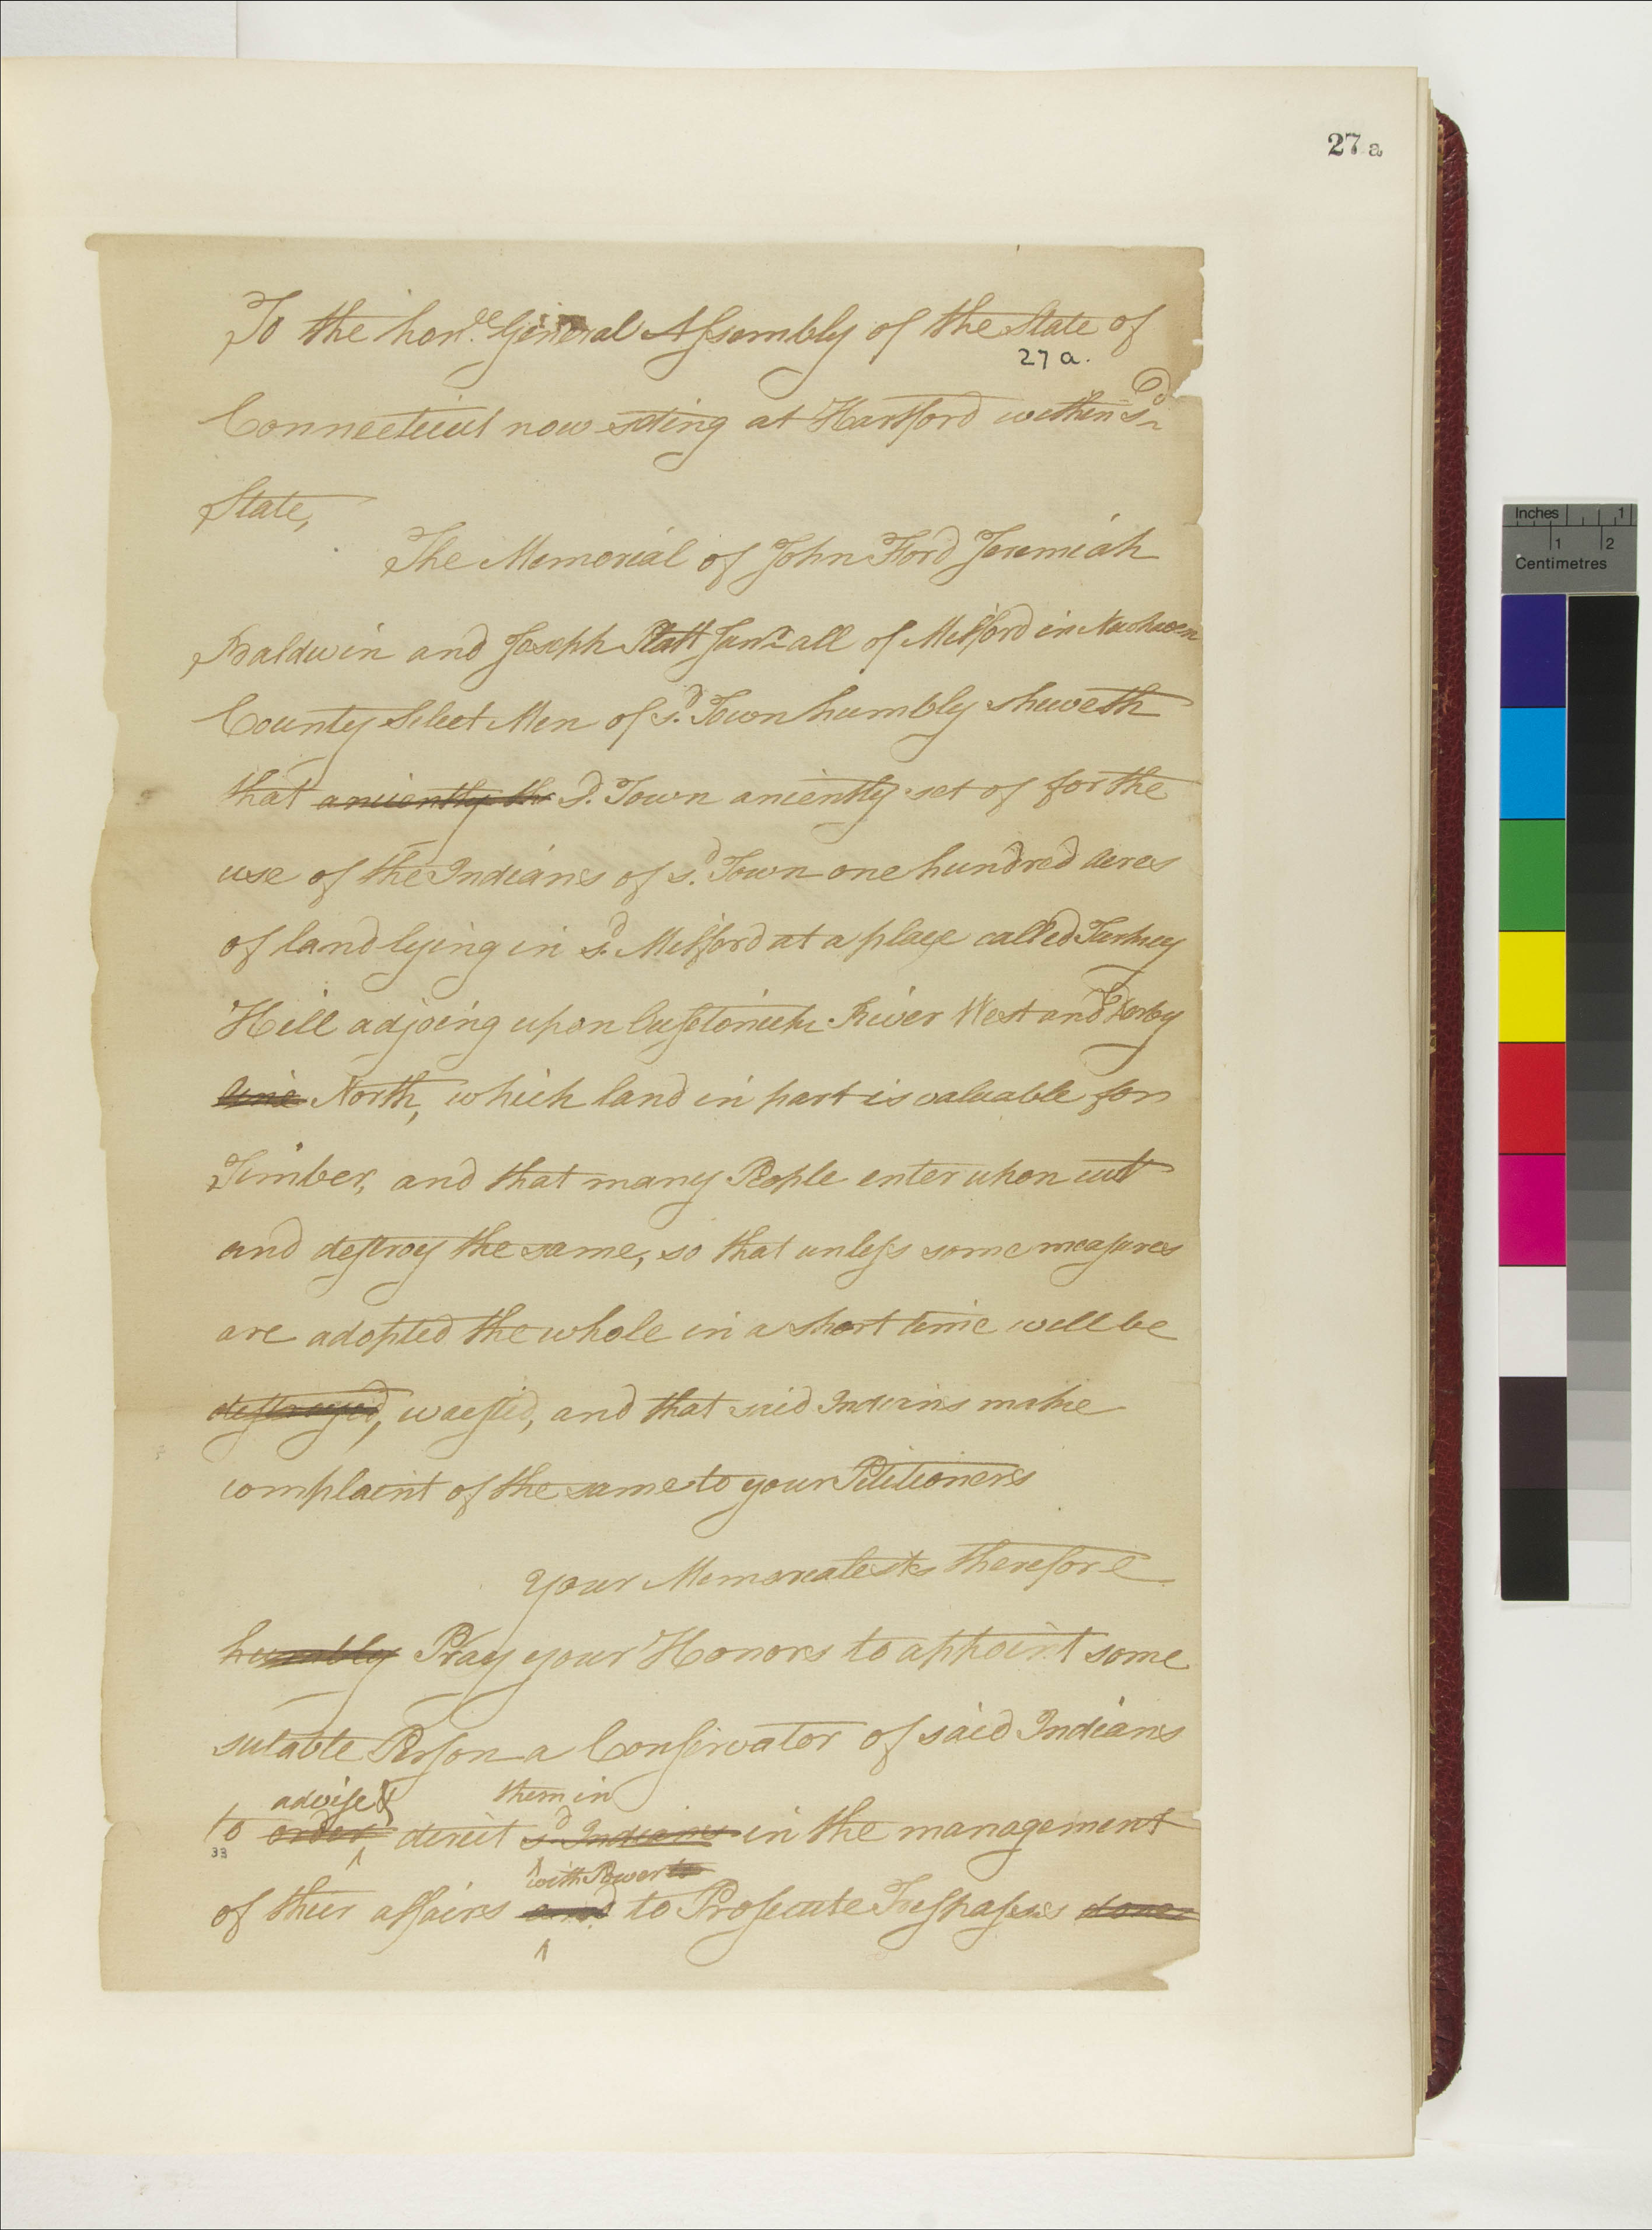 27 a
To the hon.le General Assembly of the State of
27 a.
Connecticut now seting at Hartford within sd
State,
The Memorial of John Ford Jeremiah
Baldwin and Joseph Platt Junr all of Milford in Newhaven
County Select Men of sd. Town humbly sheweth
that anciently the sd. Town anciently set of for the
use of the Indians of sd. Town one hundred Acres
of land lying in sd. Milford at a place called Turkey
Hill adjoing upon Oustonick River West and Derby
line North, which land in part is valuable for
Timber, and that many People enter upon cut
and destroy the same, so that unless some measures
are adopted the whole in a short time will be
destroyed, waested, and that said Indians make
complaint of the same to your Petitioners
Your Memorialests therefore
humbly Pray your Honors to appoint some
sutable Person a Conservator of said Indians
advise & them in
to order direct sd. Indians in the management
33
with Power to
of their affairs and to Prosecute Trespasses done